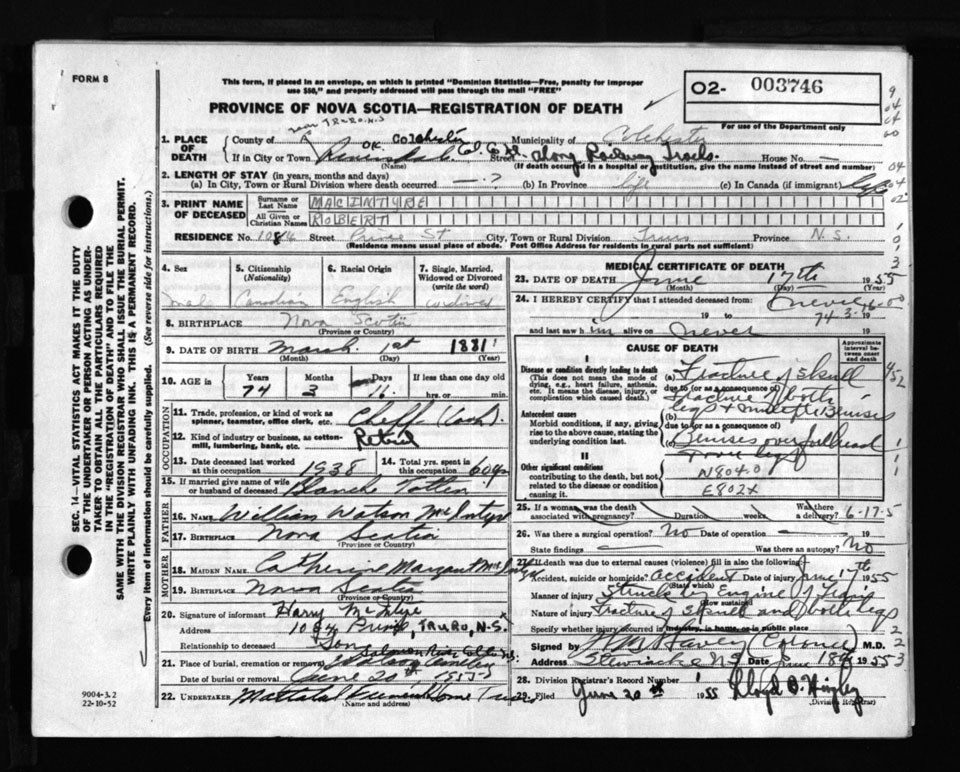 FORM 8
This form, if placed in an envelope, on which is printed "Dominion Statistics—Free, penalty for improper
use $50," and properly addressed will pass through the mail "FREE"
PROVINCE OF NOVA SCOTIA—REGISTRATION OF DEATH
O2- 003746
For use of the Department only
near TRURO. N.S
1. PLACE OF DEATH
County of Colchester Municipality of Colchester
If in City or Town Col. Co. Street along Railway Tracks. House No. —
(Name) (If death occurred in a hospital or institution, give the name instead of street and number)
2. LENGTH OF STAY (in years, months and days)
(a) In City, Town or Rural Division where death occurred — ? (b) In Province life (c) In Canada (if immigrant) life
3. PRINT NAME OF DECEASED
Surname or Last Name MACINTYRE
All Given or Christian Names ROBERT
RESIDENCE No. 1084 Street Prince St City, Town or Rural Division Truro Province N.S.
(Residence means usual place of abode. Post Office Address for residents in rural parts not sufficient)
4. Sex
5. Citizenship (Nationality)
6. Racial Origin
7. Single, Married, Widowed or Divorced (write the word)
male Canadian English widowed
8. BIRTHPLACE Nova Scotia
(Province or Country)
9. DATE OF BIRTH March 1st 1881
(Month) (Day) (Year)
10. AGE is Years Months Days If less than one day old
74 3 16 hrs. or min.
OCCUPATION
11. Trade, profession, or kind of work as spinner, teamster, office clerk, etc. Cheff (Cook).
12. Kind of industry or business, as cotton-mill, lumbering, bank, etc. Retired
13. Date deceased last worked at this occupation 1938
14. Total yrs. spent in this occupation 60 yrs
15. If married give name of wife or husband of deceased Blanche Totten
FATHER
16. NAME William Watson McIntyre
17. BIRTHPLACE Nova Scotia
(Province or Country)
MOTHER
18. MAIDEN NAME Catherine Margaret
19. BIRTHPLACE Nova Scotia
(Province or Country)
20. Signature of informant Harry McIntyre
Address 1084 Prince, TRURO, N.S.
Relationship to deceased Son
Salmon River
21. Place of burial, cremation or removal Cemetery
Date of burial or removal June 20th 1955
22. UNDERTAKER Mattatal Funeral Home Truro
(Name and address)
MEDICAL CERTIFICATE OF DEATH
23. DATE OF DEATH June 17th 1955
(Month) (Day) (Year)
24. I HEREBY CERTIFY that I attended deceased from never
19 to 19
74 3.16
and last saw him alive on never 19
CAUSE OF DEATH
Approximate interval between onset and death
I
Disease or condition directly leading to death
(This does not mean the mode of dying, e.g., heart failure, asthenia, etc. It means the disease, injury, or complication which caused death.)
(a) Fracture of Skull
due to (or as a consequence of)
Fracture of both
(b) legs & multiple Bruises
Antecedent causes
Morbid conditions, if any, giving rise to the above cause, stating the underlying condition last.
due to (or as a consequence of)
Bruises over forehead
II
Other significant conditions
contributing to the death, but not related to the disease or condition causing it.
N804.0
E802X
25. If a woman, was the death associated with pregnancy? Duration weeks. Was there a delivery?
6-17-5
26. Was there a surgical operation? No Date of operation —
State findings — Was there an autopsy? No
27. If death was due to external causes (violence) fill in also the following:
Accident, suicide or homicide? accident Date of injury June 17th 1955
(State which)
Manner of injury Struck by Engine of Train
(How sustained)
Nature of injury Fracture of Skull and both legs
Specify whether injury occurred in industry, in home, or in public place
Signed by (Coroner) M.D.
Address Stewiacke NS Date June 18th 1955
28. Division Registrar's Record Number
29. Filed June 20th 1955 Lloyd B. Higley
(Division Registrar)
SEC. 14—VITAL STATISTICS ACT MAKES IT THE DUTY
OF THE UNDERTAKER OR PERSON ACTING AS UNDER-
TAKER TO OBTAIN ALL THE PARTICULARS REQUIRED
IN THE "REGISTRATION OF DEATH" AND TO FILE THE
SAME WITH THE DIVISION REGISTRAR WHO SHALL ISSUE THE BURIAL PERMIT.
WRITE PLAINLY WITH UNFADING INK. THIS IS A PERMANENT RECORD.
Every item of information should be carefully supplied. (See reverse side for instructions.)
9004-3.2
22-10-52